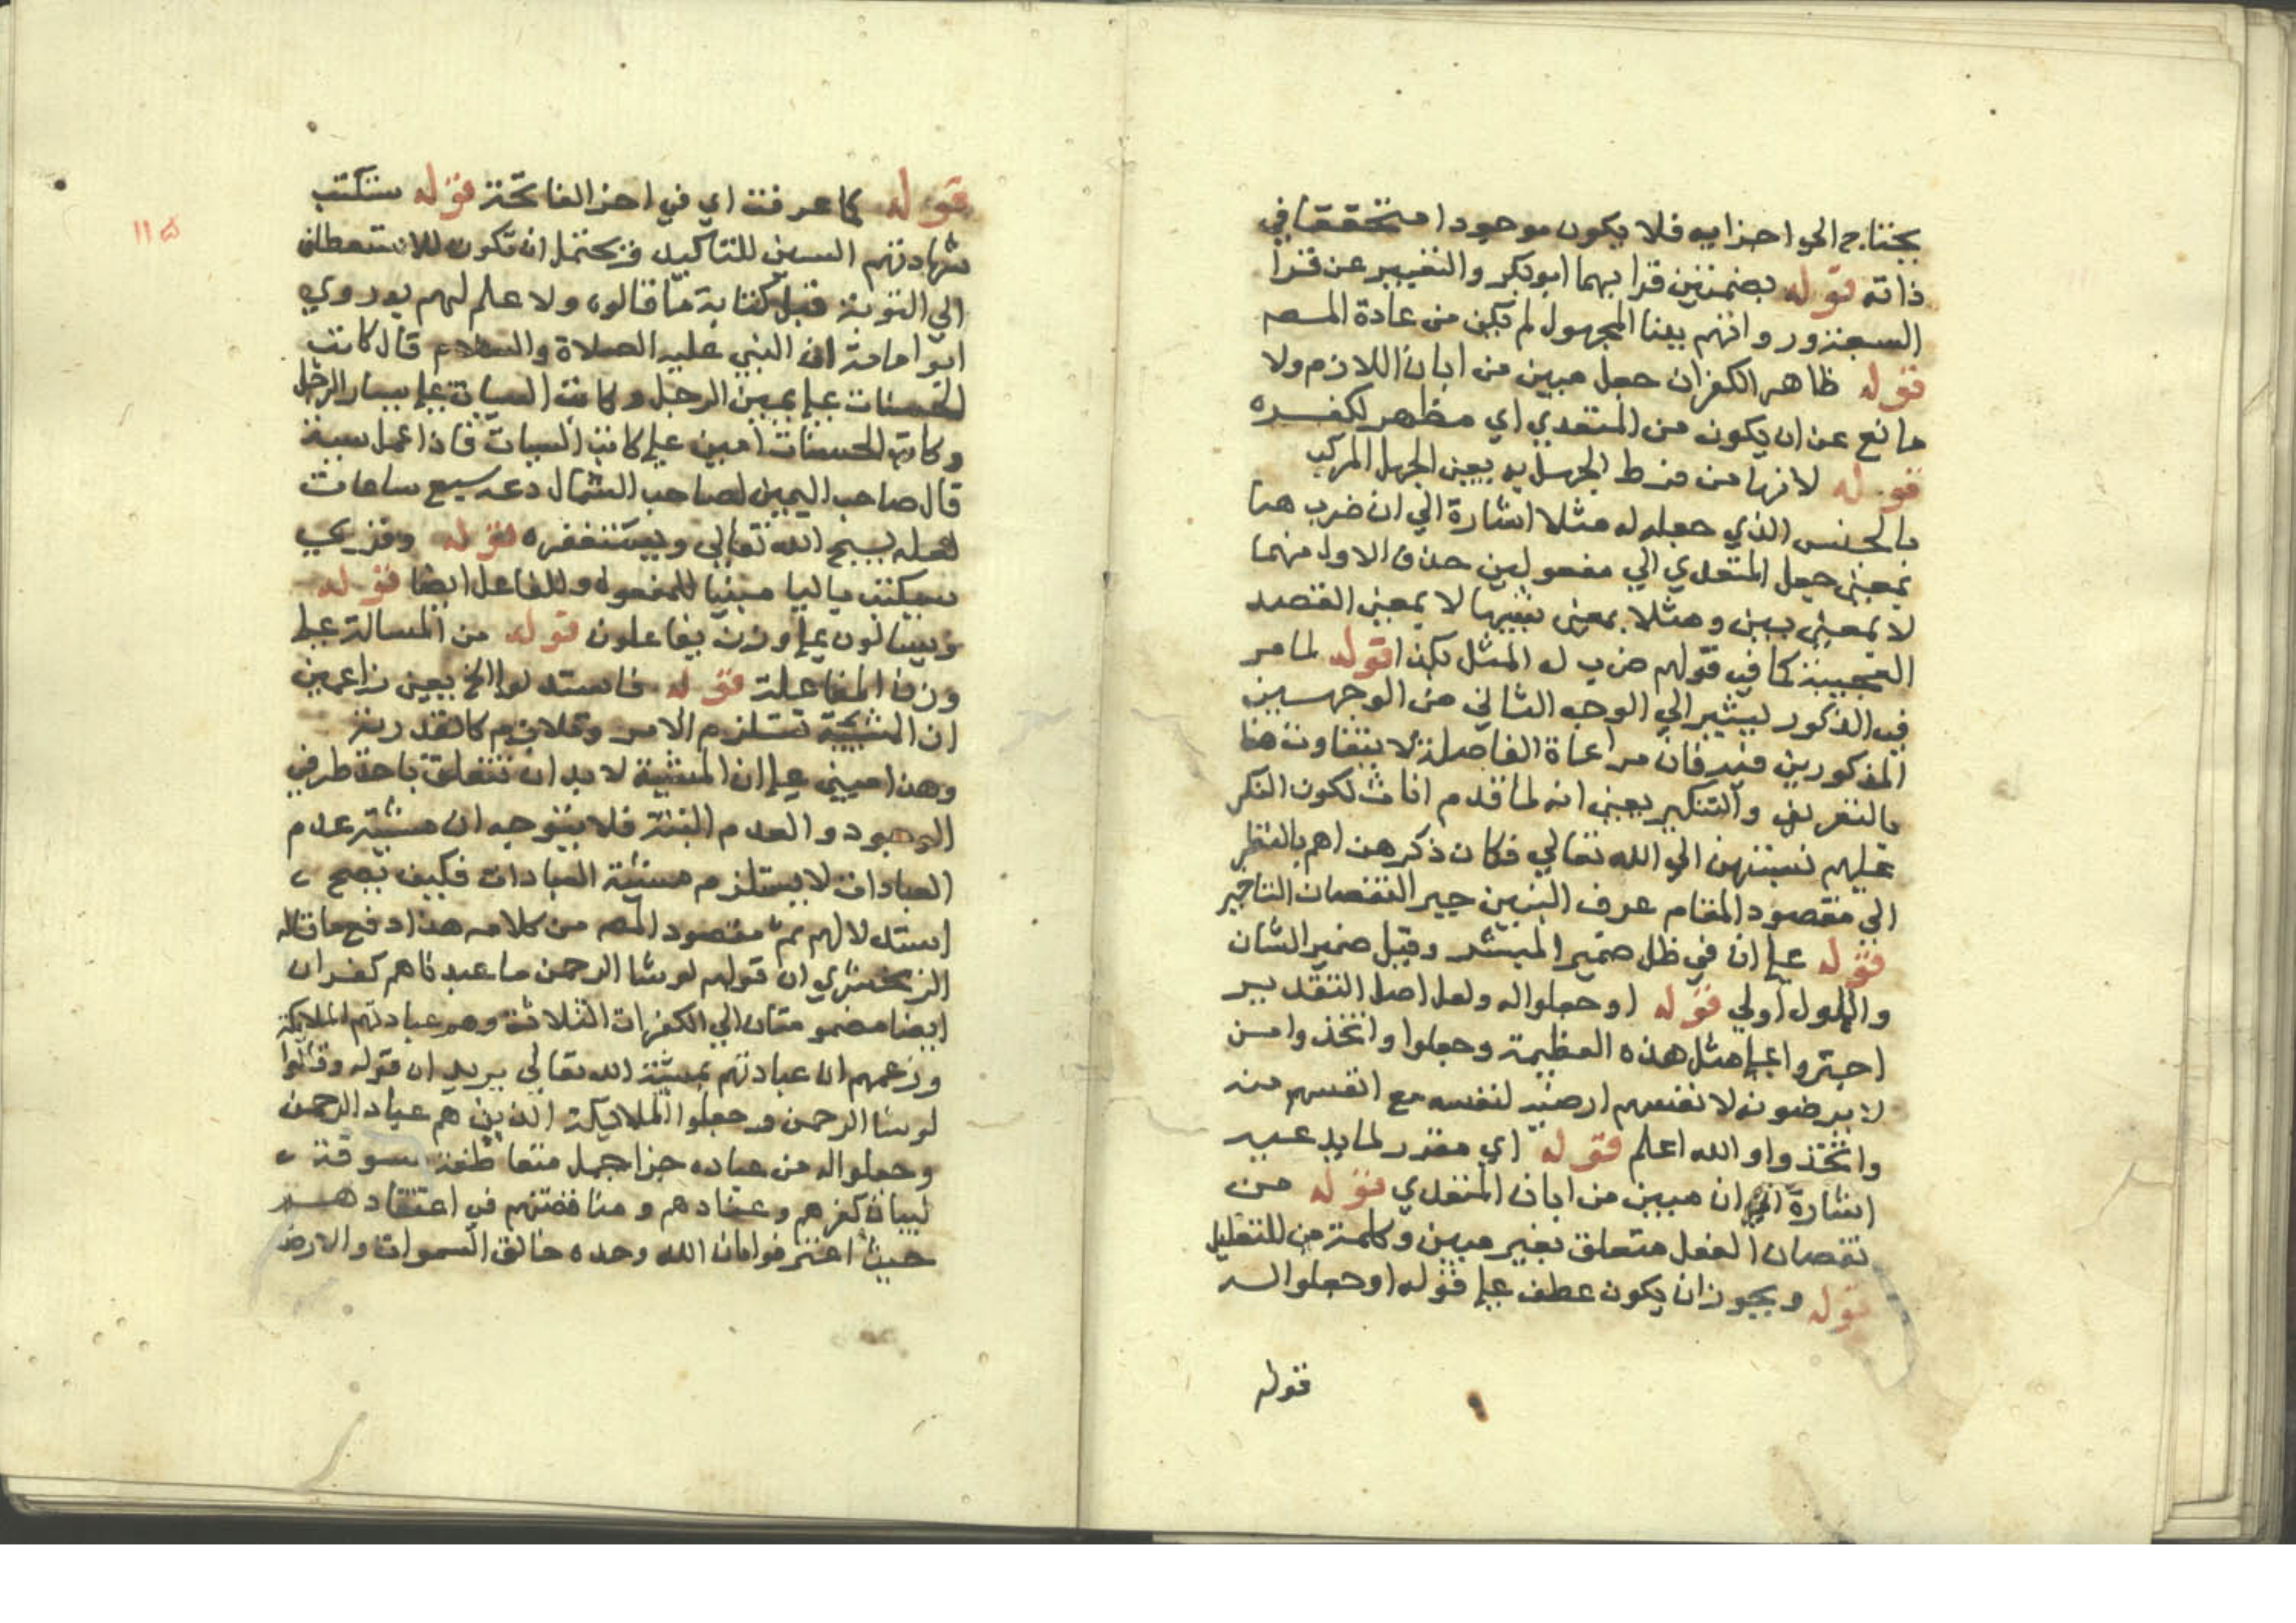 يحتاج الي اجزايه فلا يكون موجودا متحققا في
ذاته قوله بضمتين قرا بهما ابو بكر والتغيير عن قرا
السبعة ور وانهم ببنا المجهول لم تكن من عادة المصه
قوله ظاهر الكفران جعل مبين من ابان اللازم ولا
مانع عن ان يكون من المتعدي اي مظهر لكفره
قوله لانها من فرط الجهل به يعني الجهل المركب
بالجنس الذي جعله له مثلا اشارة الي ان ضرب هنا
بمعني جعل المتعدي الي مفعولين حذف الاول منهما
لا بمعني بين ومثلا بمعني شبيها لا بمعني القصد
العجيبة كما في قولهم ضرب له المثل بكذا قوله لما مر
في الذكور ليشير الي الوجه الثاني من الوجهين
المذكورين فيه فان مراعاة الفاصلة لا يتفاوت هنا
بالتعريف والتنكير يعني انه لما قدم اناث لكون النكر
عليهم نسبتهن الي الله تعالي فكان ذكرهن اهم بالنظر
الي مقصود المقام عرف البنين جبر النقصان التاخير
قوله علي ان في ظل ضمير المبشر وقيل ضمير الشان
والاول اولي قوله او جعلوا له ولعل اصل التقدير
اجتروا علي مثل هذه العظيمة وجعلوا واتخذوا من
لا يرضون لانفسهم ارضيه لنفسه مع انفسهم منه
واتخذوا والله اعلم قوله اي مقرر لما يدعيه
اشارة الي ان مبين من ابان المتعدي قوله من
نقصان العقل متعلق بغير مبين وكلمة من للتعليل
قوله ويجوز ان يكون عطف علي قوله او جعلوا له
قوله
قوله كما عرفت اي في اخر الفاتحة قوله ستكتب
شهادتهم السين للتاكيد ويحتمل ان تكون للاستعطاف
الي التوبة قبل كتابة ما قالوه ولا علم لهم به روي
ابو امامة ان النبي عليه الصلاة والسلام قال كاتب
الحسنات علي يمين الرجل وكاتب السيات علي يسار الرجل
وكاتب الحسنات امين علي كاتب السيات فاذا عمل سيئة
قال صاحب اليمين لصاحب الشمال دعه سبع ساعات
لعله يسبح الله تعالي ويستغفره قوله وقري
سيكتب باليا مبنيا للمفعول وللفاعل ايضا قوله
ويسالون علي وزن يفاعلون قوله من المسالة علي
وزن المفاعلة قوله فاستدلوا الخ يعني زاعمين
ان المشيئة تستلزم الامر وتلازم كالقدرية
وهذا مبني علي ان المشية لا بد ان تتعلق باحد طرفي
الوجود والعدم البتة فلا يتوجه ان مشية عدم
العبادات لا يستلزم مشيئة العبادات فكيف يصح
استدلالهم ثم مقصود المصه من كلامه هذا دفع ما قاله
الزمخشري ان قولهم لو شا الرحمن ما عبدناهم كفران
ايضا مضمومتان الي الكفرات الثلاثة وهم عبادتهم الملايكة
وزعمهم ان عبادتهم بمشية الله تعالي يريد ان قوله وقالوا
لو شا الرحمن وجعلوا الملايكة الذين هم عباد الرحمن
وجعلوا له من عباده جزا جمل متعاطفة مسوقة
لبيان كفرهم وعنادهم ومناقضتهم في اعتقادهم
حيث اعترفوا بان الله وحده خالق السموات والارض
١١٥